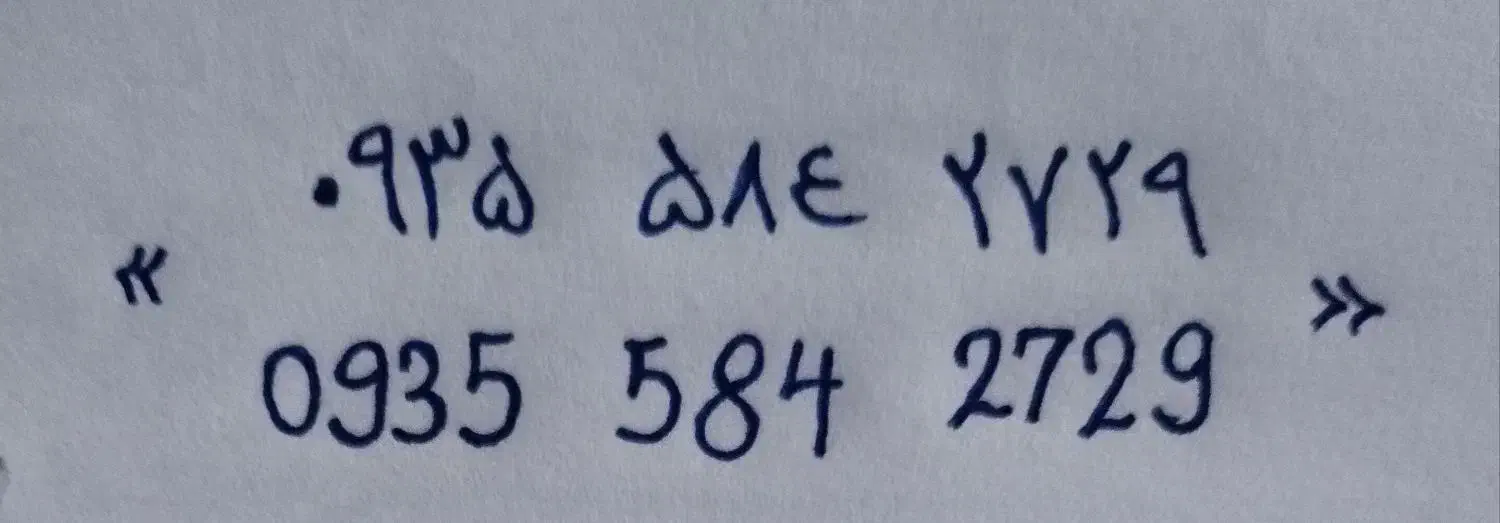 «۰۹۳۵ ۵۸٤ ۲۷۲۹
0935 584 2729»